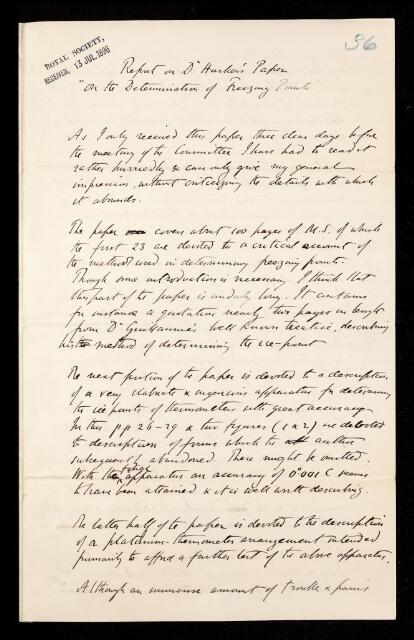 36
ROYAL SOCIETY,
RECEIVED, 13 JUL. 1896
Report on Dr Harker's Paper
"On the Determination of Freezing Points"
As I only received this paper three clear days before
the meeting of the Committee I have had to read it
rather hurriedly & can only give my general
impression, without criticizing the details with which
it abounds.
The paper covers about 100 pages of M.S. of which
the first 23 are devoted to a critical account of
the methods used in determining freezing points.
Though some introduction is necessary I think that
this part of the paper is unduly long. It contains
for instance a quotation nearly two pages in length
from Dr Guillaume's well known treatise, describing
his method of determining the ice-point
The next portion of the paper is devoted to a description
of a very elaborate & ingenious apparatus for determining
the ice points of thermometers with great accuracy.
In this pp 26-29 & two figures (1 & 2) are devoted
to descriptions of forms which the author
subsequently abandoned. These might be omitted.
With the final apparatus an accuracy of 0°.001 C seems
to have been attained & it is well worth describing.
The latter half of the paper is devoted to the description
of a platinum-thermometer arrangement intended
primarily to afford a further test of the above apparatus.
Although an immense amount of trouble & pains